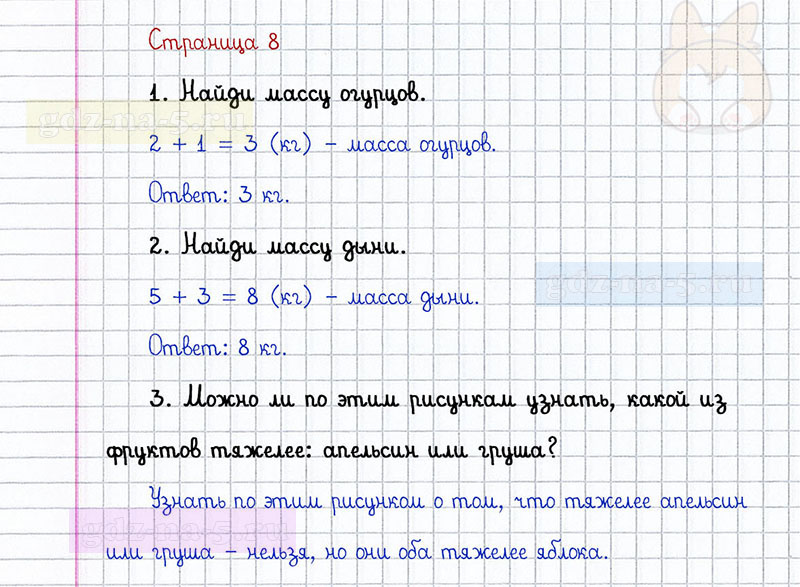 Страница 8
1. Найди массу огурцов.
gdz-na-5.ru
2 + 1 = 3 (кг) – масса огурцов.
Ответ: 3 кг.
2. Найди массу дыни.
gdz-na-5.ru
5 + 3 = 8 (кг) – масса дыни.
Ответ: 8 кг.
3. Можно ли по этим рисункам узнать, какой из
фруктов тяжелее: апельсин или груша?
Узнать по этим рисунком о том, что тяжелее апельсин
gdz-na-5.ru
или груша – нельзя, но они оба тяжелее яблока.